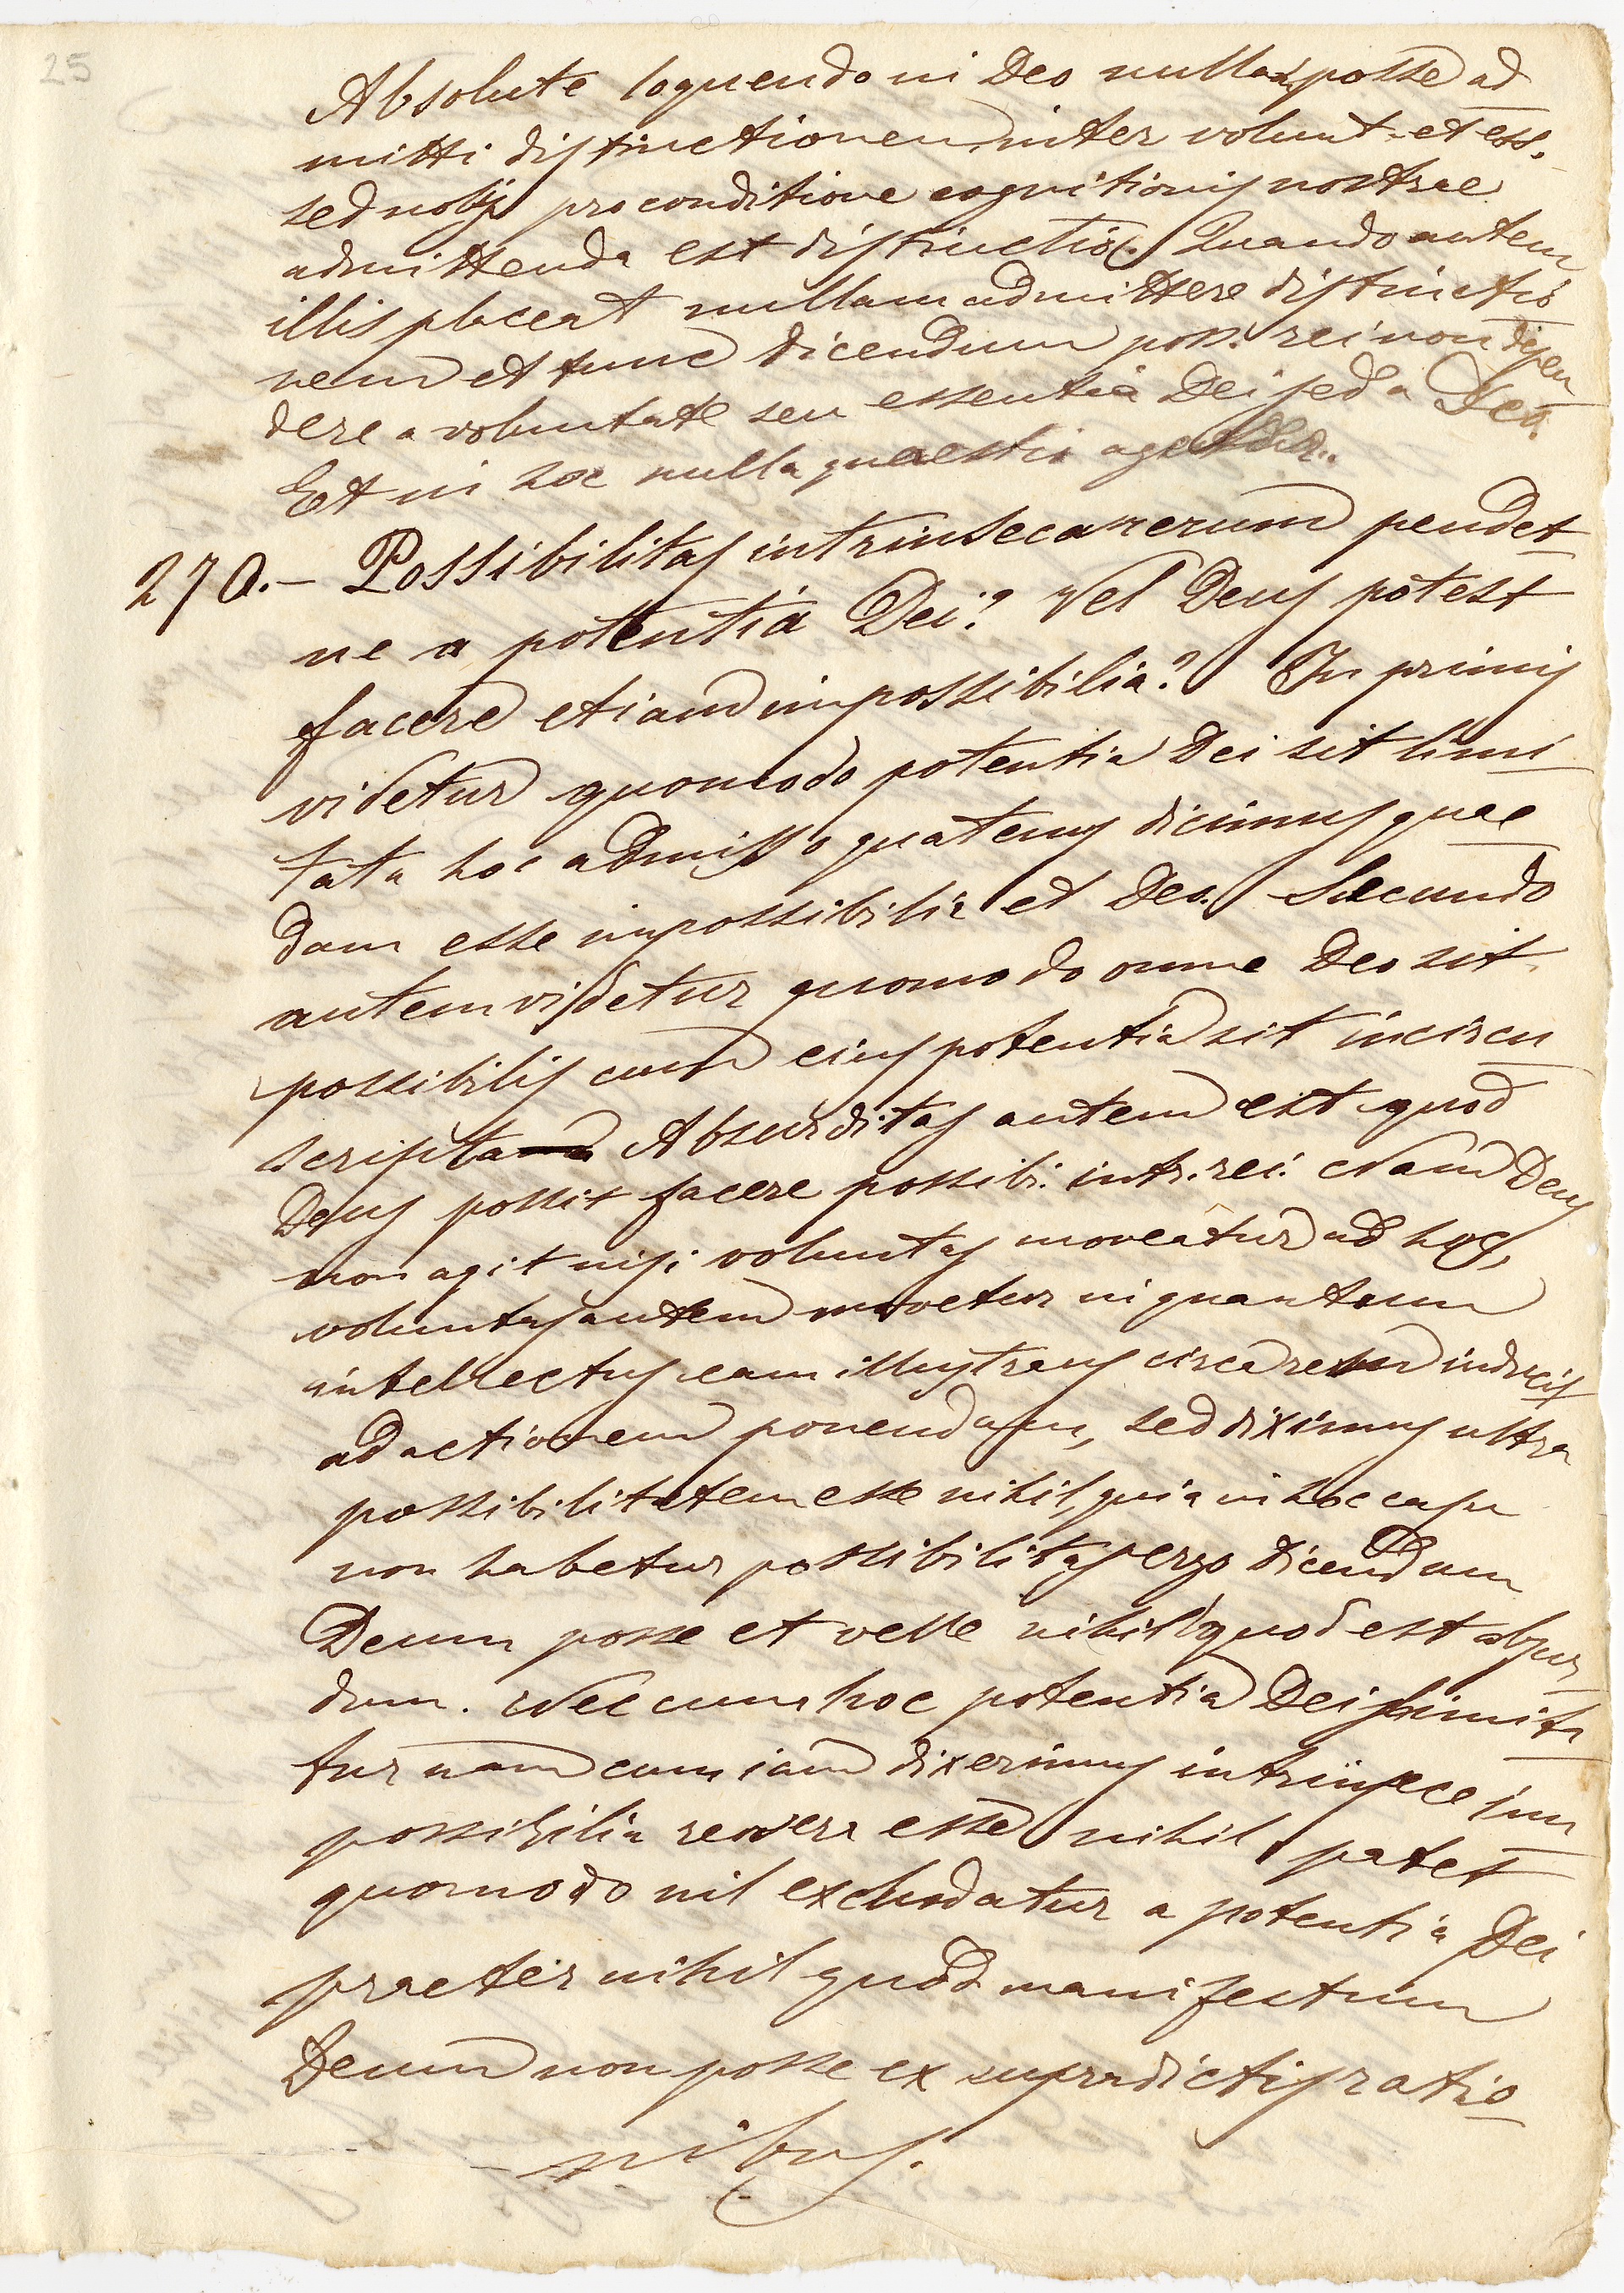 25
Absolute loquendo in Deo nullam posse ad
mitti distinctionem inter volunt. et ess.
sed nobis pro conditione cognitionis nostrae
admittenda est distinctio. Quando autem
illis placeat nullam admittere distinctio
nem et tunc dicendum poss. rei non depen
dere a voluntate seu essentia Dei sed a Deo.
Et in hoc nulla quaestio
270.— Possibilitas intrinseca rerum pendet
ne a potentia Dei? Vel Deus potest
facere etiam impossibilia? In primis
videtur quomodo potentia Dei sit limi
tata hoc admisso quatenus dicimus quae
dam esse impossibilia et Deo. Secundo
autem videtur quomodo omne Deo sit
possibilis cum eius potentia sit incircu
scripta Absurditas autem est quod
Deus possit facere possibi. intr. rei. Nam Deus
non agit nisi voluntas moveatur ad hoc,
voluntas autem movetur in quantum
intellectus eam illustrans circa rem inducit
ad actionem ponendam, sed diximus ultra
possibilitatem esse nihil, quia in hoc casu
non habetur possibilitas ergo dicendum
Deum posse et velle nihil quod est absur
dum. Nec cum hoc potentia Dei limita
tur nam cum iam dixerimus intrinsece im
possibilia revera esse nihil patet
quomodo nil excludatur a potentia Dei
praeter nihil quod manifestum
Deum non posse ex supradictis ratio
nibus.